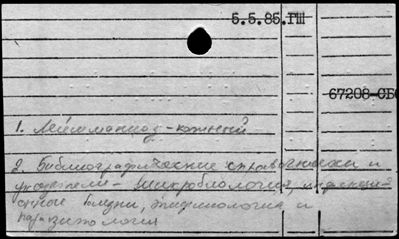 5.5.85.ГШ
67208-СБ
1. Лейшманиоз - кожный
2. Библиографические справочники и
указатели - микробиология инфекци-
онные болезни, эпидемиология и
паразитология